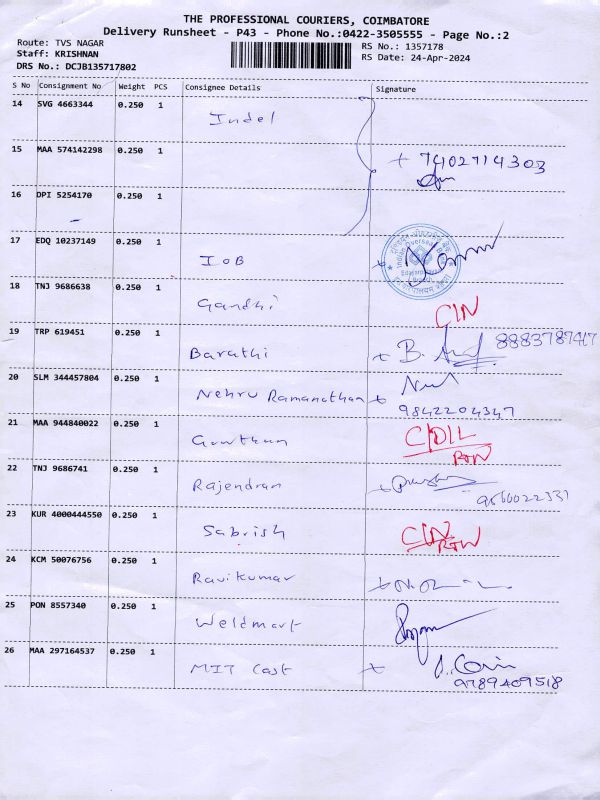 THE PROFESSIONAL COURIERS, COIMBATORE
Delivery Runsheet - P43 - Phone No.:0422-3505555 - Page No.:2
Route: TVS NAGAR
Staff: KRISHNAN
DRS No.: DCJB135717802
RS No.: 1357178
RS Date: 24-Apr-2024
S No Consignment No Weight PCS Consignee Details Signature
14 SVG 4663344 0.250 1 Indel
15 MAA 574142298 0.250 1 7402714303
16 DPI 5254170 0.250 1
17 EDQ 10237149 0.250 1 IOB
18 TNJ 9686638 0.250 1 Gandhi CIN
19 TRP 619451 0.250 1 Barathi B. 8883787417
20 SLM 344457804 0.250 1 Nehru Ramanathan 9842204347
21 MAA 944840022 0.250 1 Gowtham C/DIL RTN
22 TNJ 9686741 0.250 1 Rajendran
23 KUR 4000444550 0.250 1 Sabrish CIN RTN
24 KCM 50076756 0.250 1 Ravikumar
25 PON 8557340 0.250 1 Weldmart
26 MAA 297164537 0.250 1 MIT Cast 9789409518